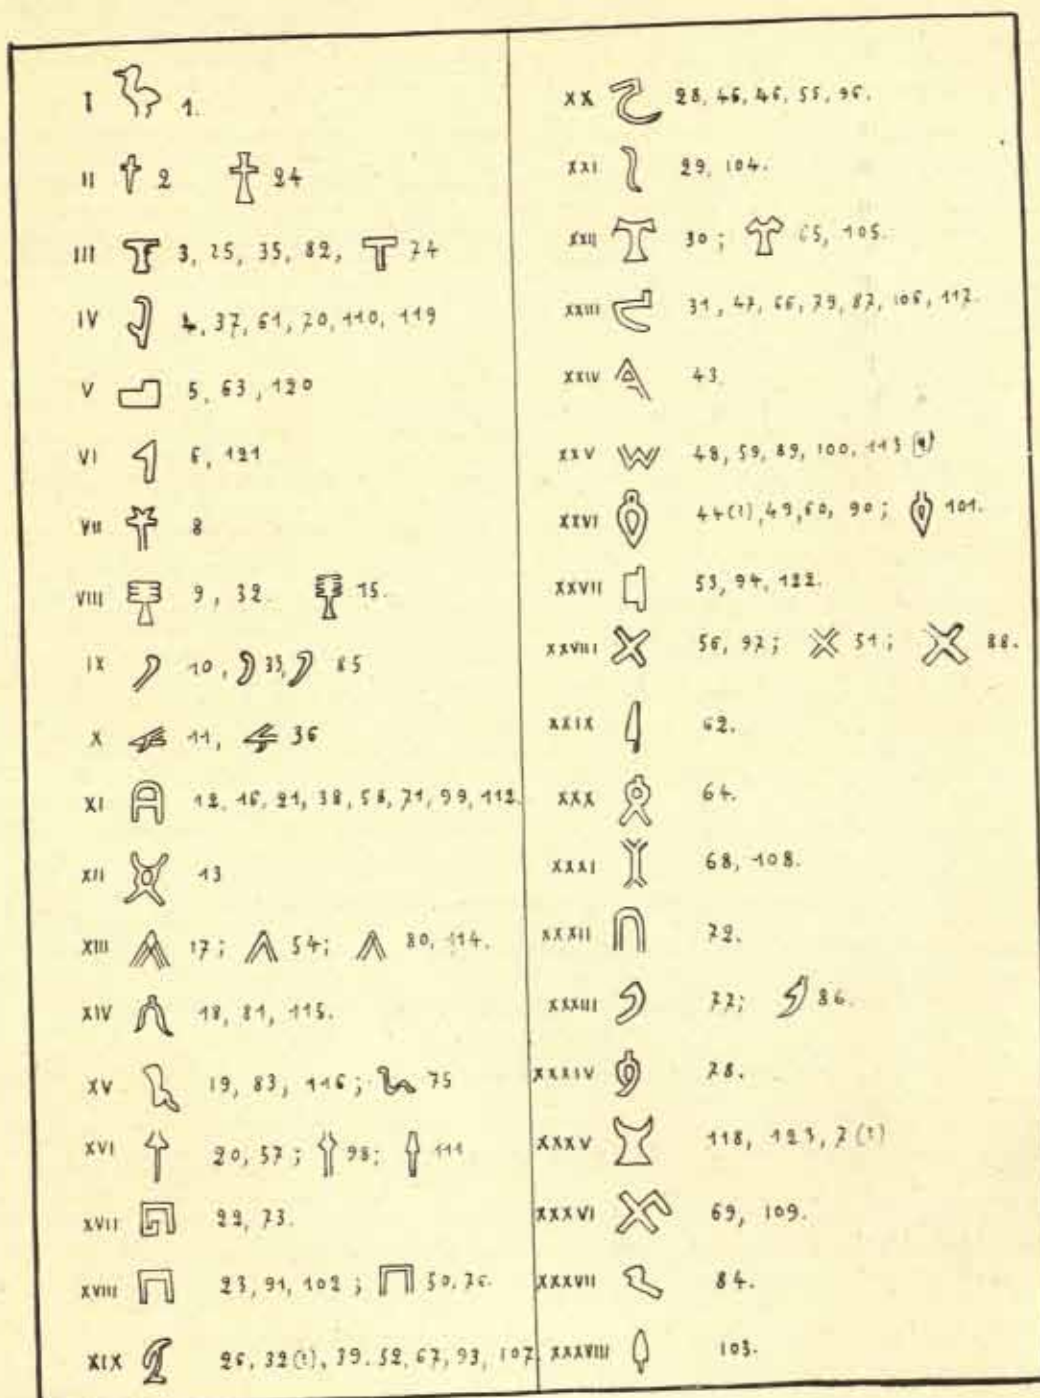 I 1.
II 2 24
III 3, 25, 35, 82, 74
IV 4, 37, 61, 70, 110, 119
V 5, 63, 120
VI 6, 121
VII 8
VIII 9, 32. 15.
IX 10, 33, 85
X 11, 36
XI 12, 16, 21, 38, 58, 71, 99, 112.
XII 13
XIII 17; 54; 80, 114.
XIV 18, 81, 115.
XV 19, 83, 116; 75
XVI 20, 57; 98; 111
XVII 22, 73.
XVIII 23, 91, 102; 50, 76.
XIX 26, 32(?), 39, 52, 67, 93, 107.
XX 28, 46, 46, 55, 96.
XXI 29, 104.
XXII 30; 65, 105.
XXIII 31, 47, 66, 79, 87, 106, 117.
XXIV 43.
XXV 48, 59, 89, 100, 113
XXVI 44(?), 49, 60, 90; 101.
XXVII 53, 94, 122.
XXVIII 56, 97; 51; 88.
XXIX 62.
XXX 64.
XXXI 68, 108.
XXXII 72.
XXXIII 77; 86.
XXXIV 78.
XXXV 118, 123, 7(?)
XXXVI 69, 109.
XXXVII 84.
XXXVIII 103.